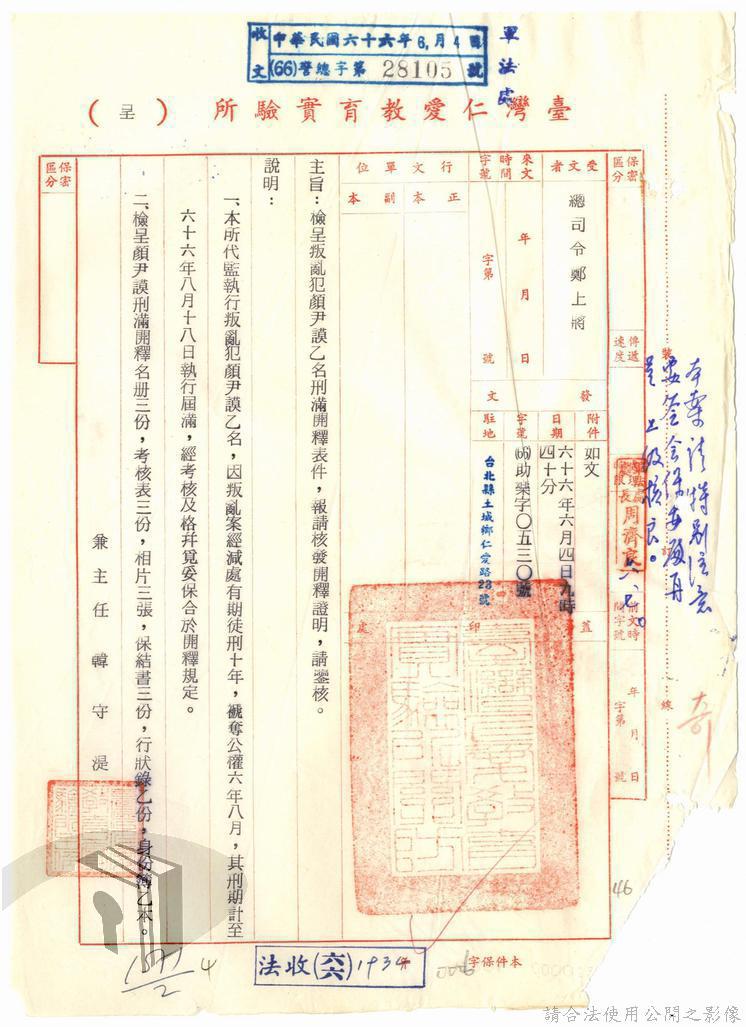 收文 中華民國六十六年6月4日
(66)警總字第28105號
軍法處
臺灣仁愛教育實驗所（呈）
保密區分
傳遞速度
受文者
總司令鄭上將
來文
時間
字號
年 月 日
字第 號
行文單位
正本
副本
發文
附件
如文
日期
六十六年六月四日九時四十分
字號
(66)助業字〇五三〇號
駐地
台北縣土城鄉仁愛路23號
蓋印處
年 月 日
字第 號
裝
訂
線
周濟良
本案請特別注意
呈上級核良。
奇
46
主旨：檢呈叛亂犯顏尹謨乙名刑滿開釋表件，報請核發開釋證明，請鑒核。
說明：
一、本所代監執行叛亂犯顏尹謨乙名，因叛亂案經減處有期徒刑十年，褫奪公權六年八月，其刑期計至
六十六年八月十八日執行屆滿，經考核及格幷覓妥保合於開釋規定。
二、檢呈顏尹謨刑滿開釋名册三份，考核表三份，相片三張，保結書三份，行狀錄乙份，身份簿乙本。
兼主任 韓守湜
保密區分
法收(六六)1934
本件保字
請合法使用公開之影像